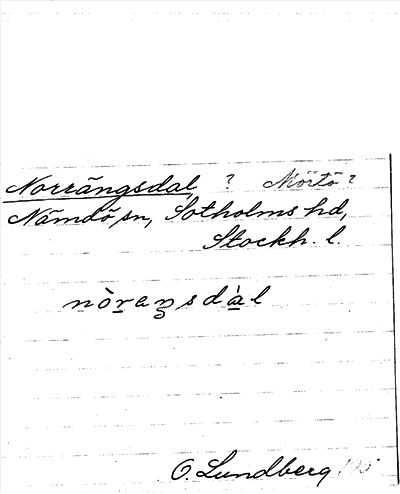 Norrängsdal, ? Mörtö?
Nämdö sn, Sotholms hd,
Stockh. l.
nòraŋsdàl
O. Lundberg